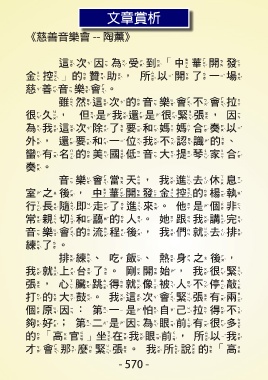 文章賞析
《慈善音樂會 -- 陶薰》
這次因為受到「中華開發
金控」的贊助，所以開了一場
慈善音樂會。
雖然這次的音樂會不會拉
很久，但是我還是很緊張，因
為我這次除了要和媽媽合奏以
外，還要和一位我不認識的、
蠻有名的美國低音大提琴家合
奏。
音樂會當天，我進去休息
室之後，中華開發金控的楊執
行長隨即走了進來。他是個非
常親切和藹的人。她跟我講完
音樂會的流程後，我們就去排
練了。
排練、吃飯、熱身之後，
我就上台了。剛開始，我很緊
張，心臟跳得就像被人不停敲
打的大鼓。我這次會緊張有兩
個原因：第一是怕自己拉得不
夠好；第二是因為眼前有很多
的「高官」坐在我眼前，所以我
才會那麼緊張。我所說的「高
- 570 -